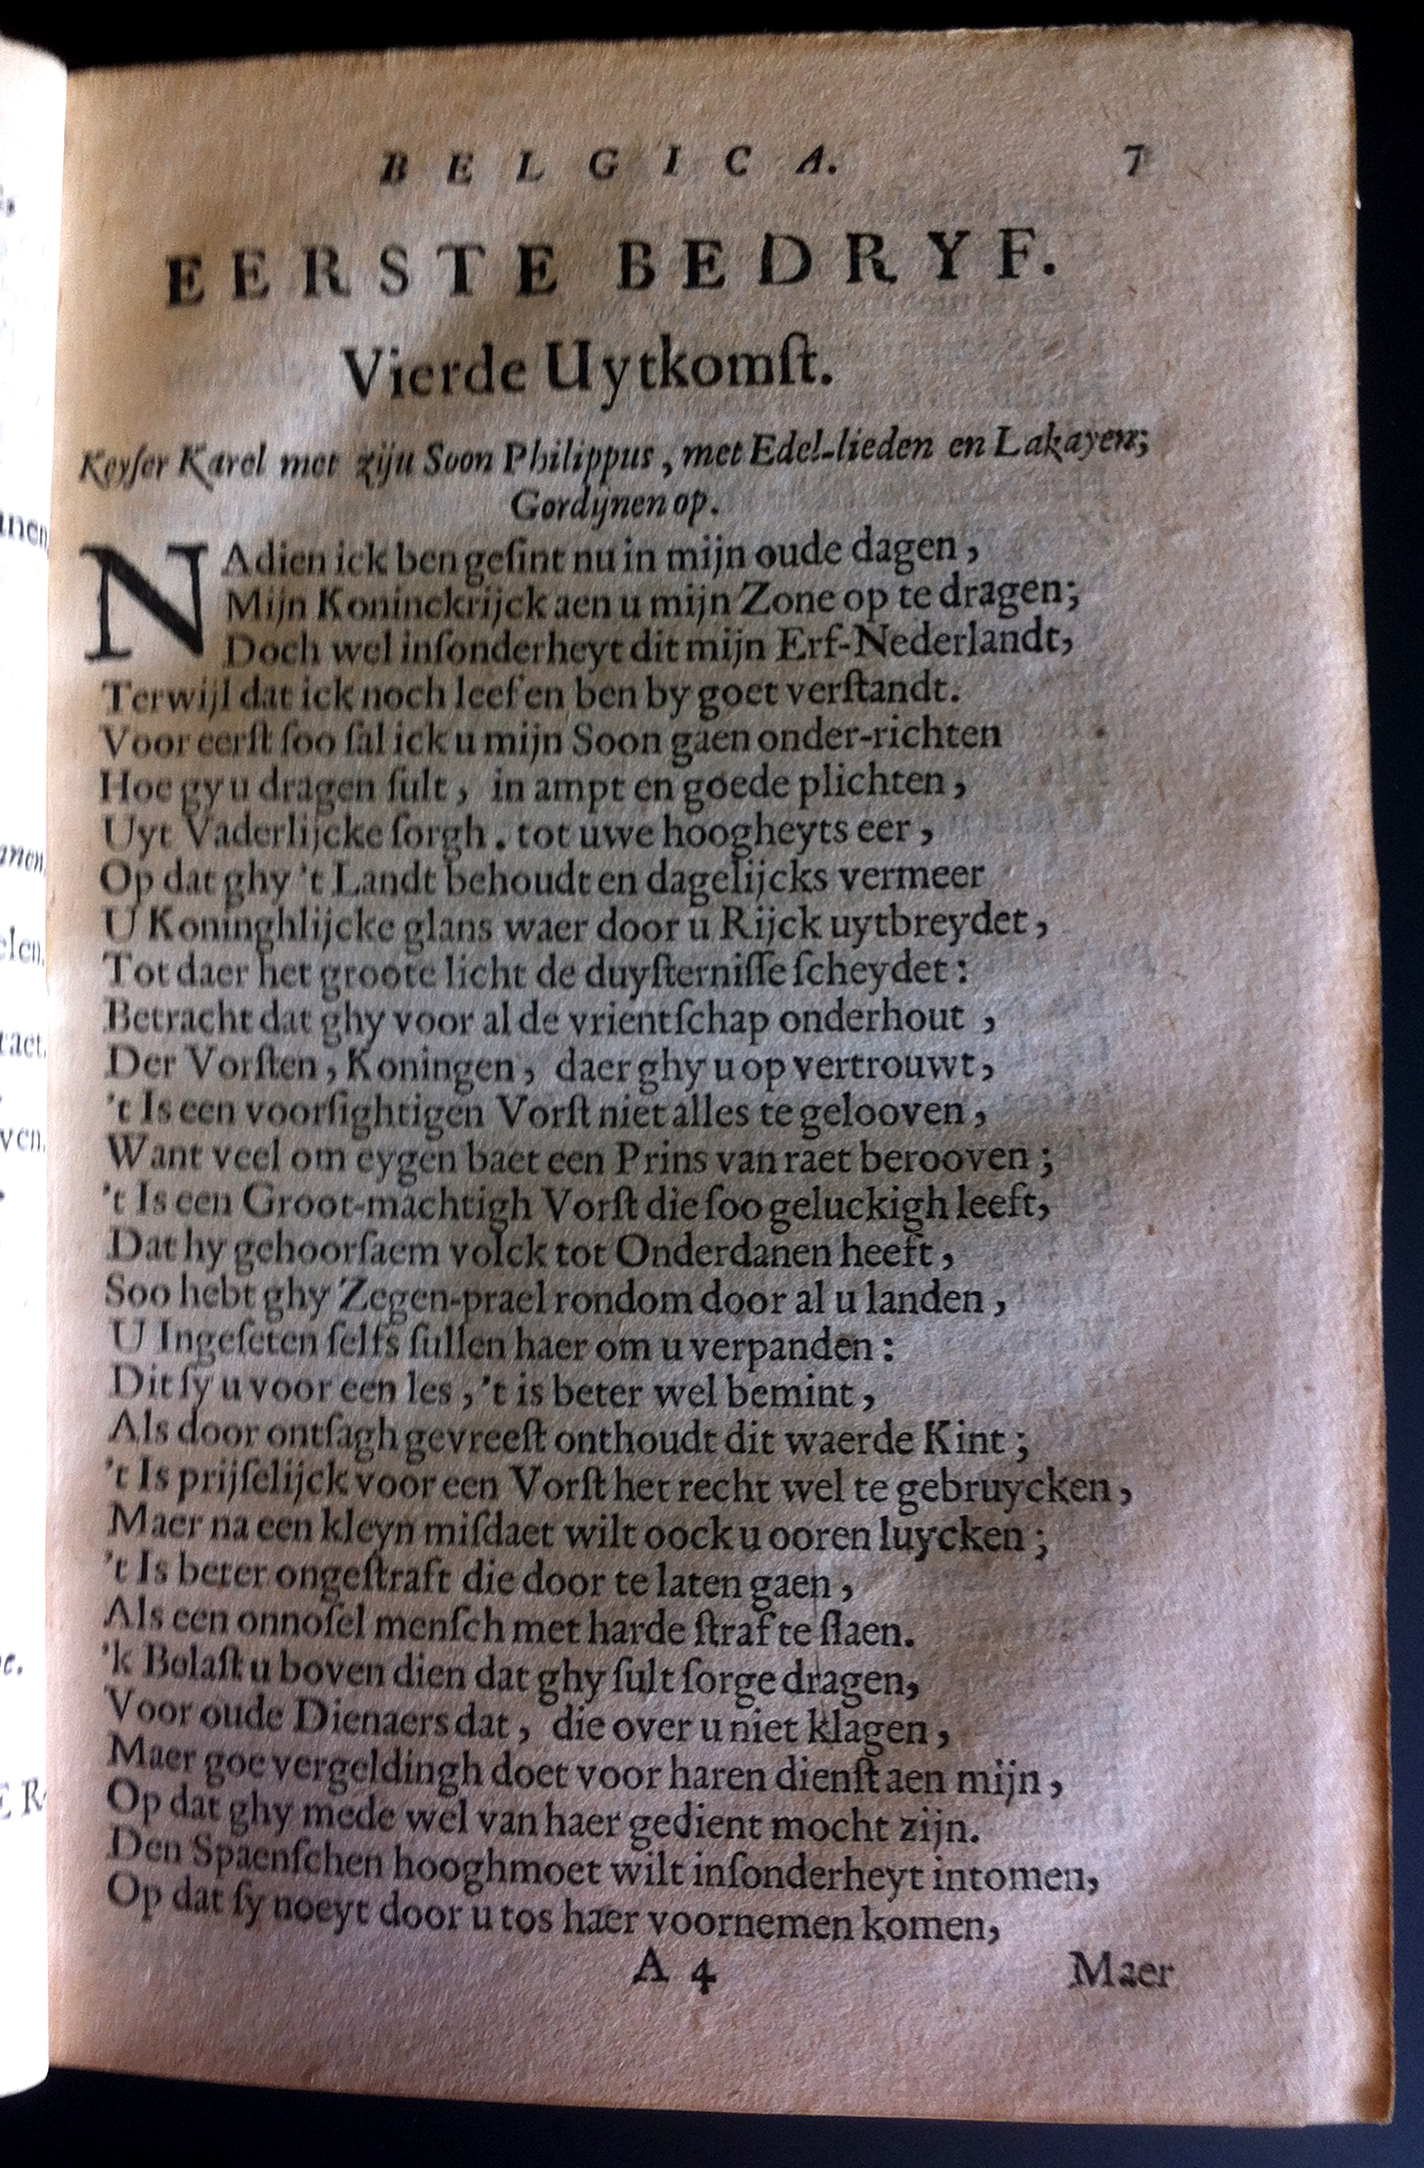 BELGICA. 7
EERSTE BEDRYF.
Vierde Uytkomſt.
Keyſer Karel met zijn Soon Philippus, met Edel-lieden en Lakayen;
Gordijnen op.
NAdien ick ben geſint nu in mijn oude dagen,
Mijn Koninckrijck aen u mijn Zone op te dragen;
Doch wel inſonderheyt dit mijn Erf-Nederlandt,
Terwijl dat ick noch leef en ben by goet verſtandt.
Voor eerſt ſoo ſal ick u mijn Soon gaen onder-richten
Hoe gy u dragen ſult, in ampt en goede plichten,
Uyt Vaderlijcke ſorgh. tot uwe hoogheyts eer,
Op dat ghy 't Landt behoudt en dagelijcks vermeer
U Koninghlijcke glans waer door u Rijck uytbreydet,
Tot daer het groote licht de duyſterniſſe ſcheydet:
Betracht dat ghy voor al de vrientſchap onderhout,
Der Vorſten, Koningen, daer ghy u op vertrouwt,
't Is een voorſightigen Vorſt niet alles te gelooven,
Want veel om eygen baet een Prins van raet berooven;
't Is een Groot-machtigh Vorſt die ſoo geluckigh leeft,
Dat hy gehoorſaem volck tot Onderdanen heeft,
Soo hebt ghy Zegen-prael rondom door al u landen,
U Ingeſeten ſelfs ſullen haer om u verpanden:
Dit ſy u voor een les, 't is beter wel bemint,
Als door ontſagh gevreeſt onthoudt dit waerde Kint;
't Is prijſelijck voor een Vorſt het recht wel te gebruycken,
Maer na een kleyn miſdaet wilt oock u ooren luycken;
't Is beter ongeſtraft die door te laten gaen,
Als een onnoſel menſch met harde ſtraf te ſlaen.
'k Belaſt u boven dien dat ghy ſult ſorge dragen,
Voor oude Dienaers dat, die over u niet klagen,
Maer goe vergeldingh doet voor haren dienſt aen mijn,
Op dat ghy mede wel van haer gedient mocht zijn.
Den Spaenſchen hooghmoet wilt inſonderheyt intomen,
Op dat ſy noeyt door u tos haer voornemen komen,
A 4 Maer